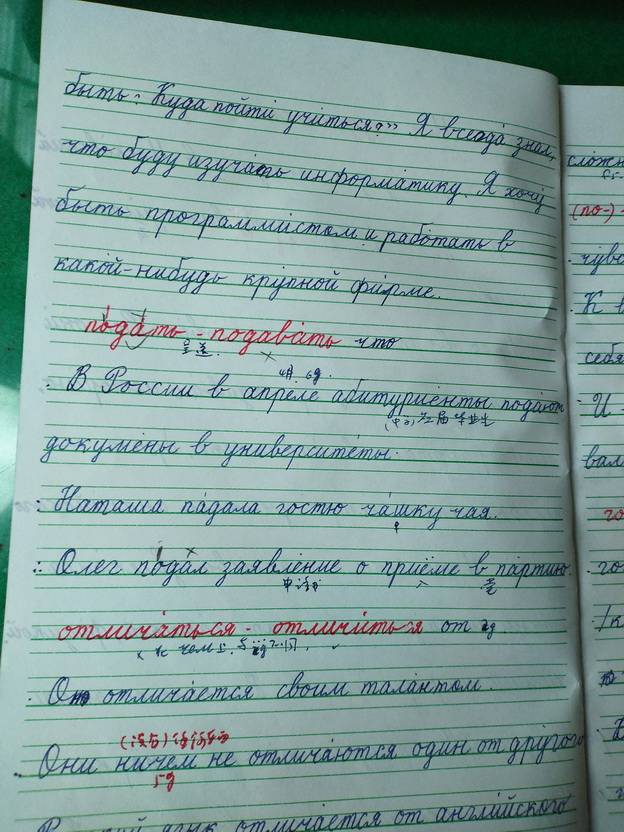 быть: Куда пойти́ учи́ться?» Я всегда́ знал,
что бу́ду изуча́ть информа́тику. Я хочу́
быть программи́стом и рабо́тать в
како́й-нибудь кру́пной фи́рме.
пода́ть - подава́ть что
呈送
4月 6д.
· В Росси́и в апре́ле абитурие́нты подаю́т
(中学) 应届毕业生
докуме́ны в университе́ты.
· Ната́ша па́дала гостю ча́шку чая.
∴ Оле́г по́дал заявле́ние о прие́ме в па́ртию.
отлича́ться - отличи́ться от
· Он отлича́ется свои́м тала́нтом.
· Они ниче́м не отлича́ются оди́н от друго́го
5д
язык отлича́ется от англи́йского
сло́жн
(по-)
чу́вс
· К в
себя
· И
вал
го
го